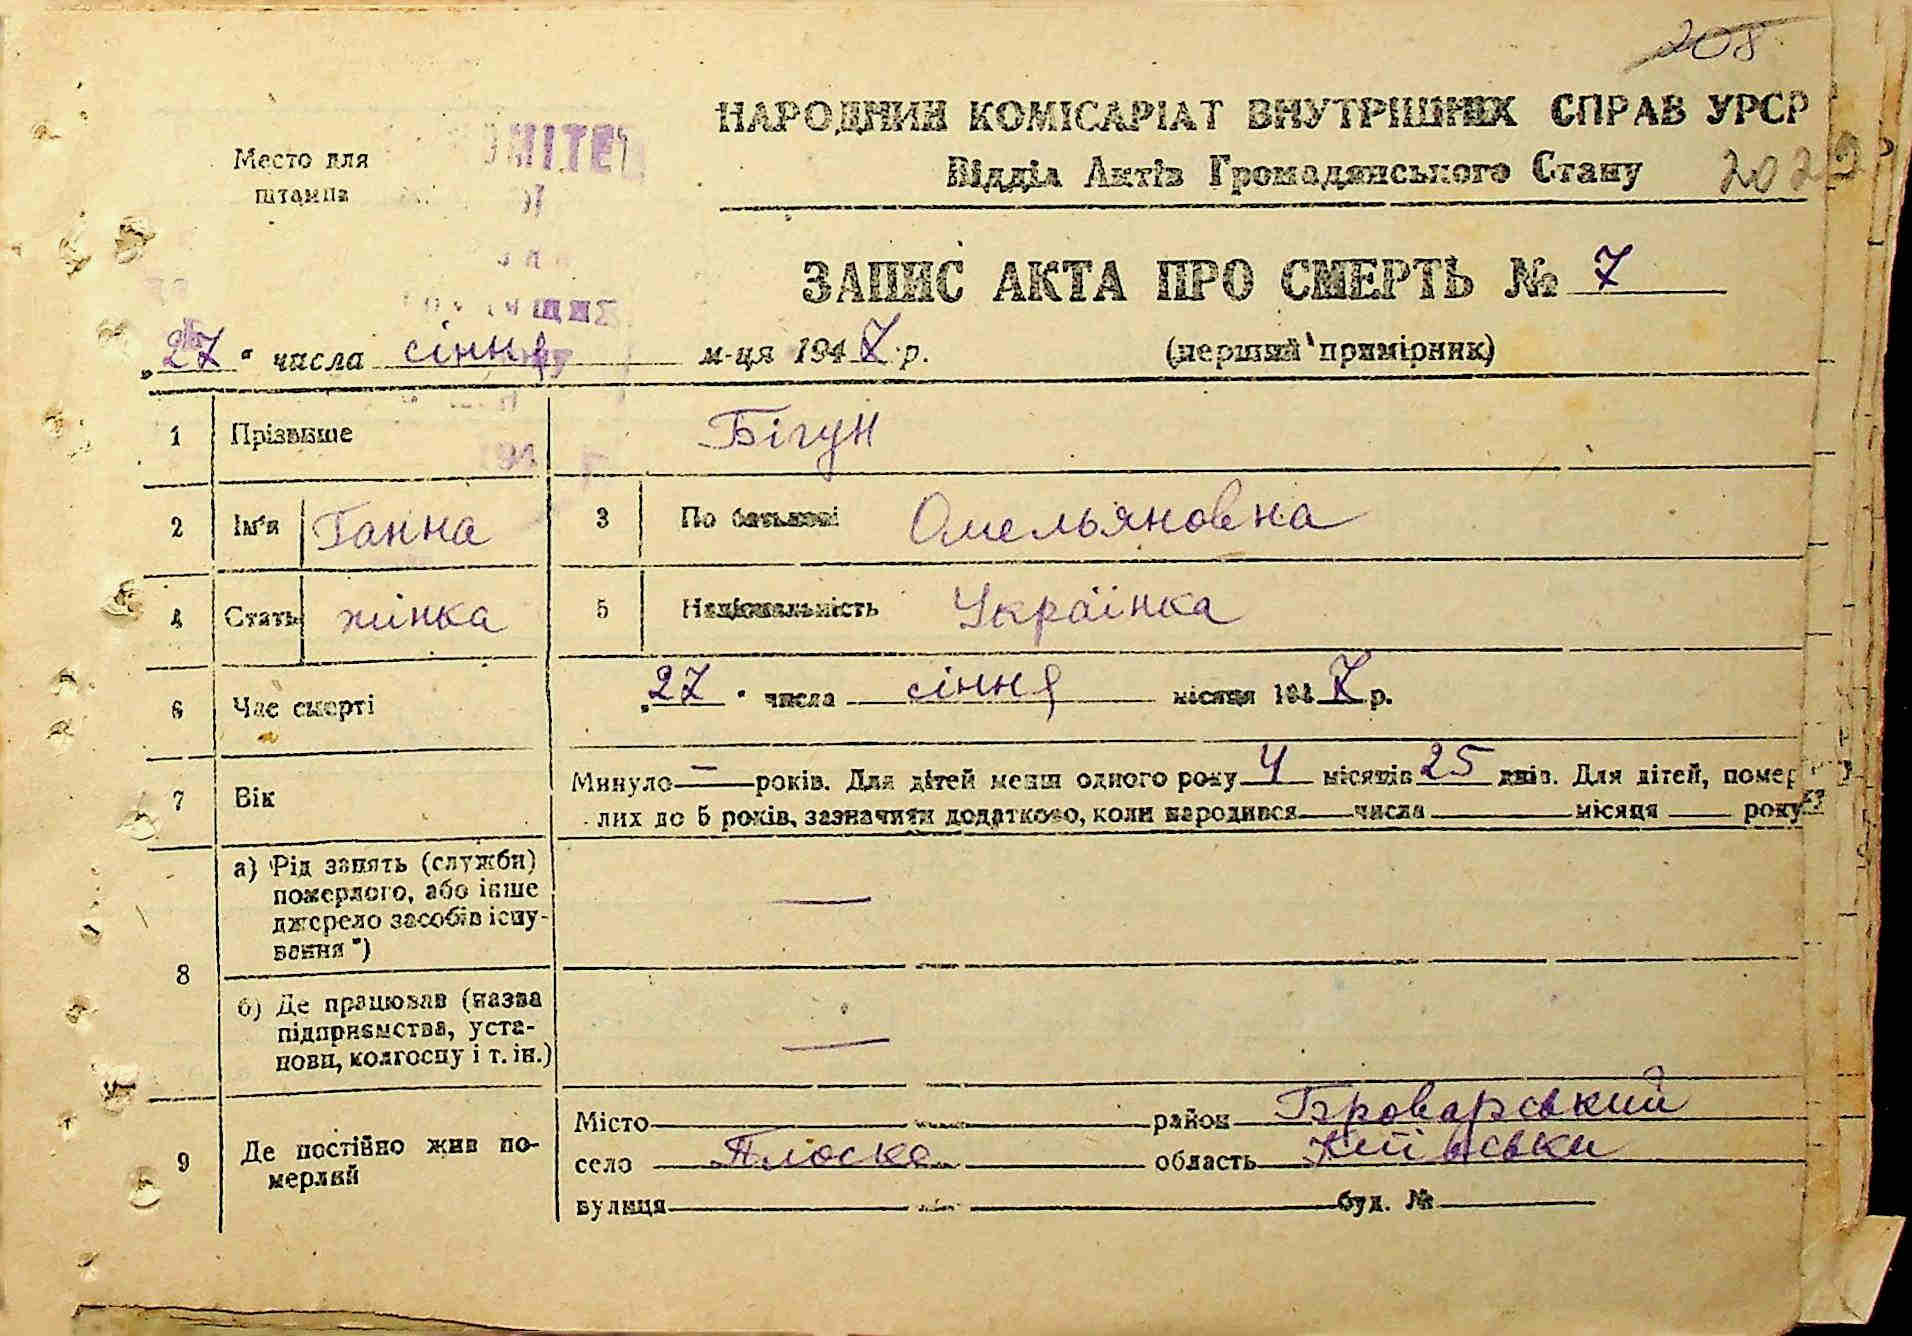 208
НАРОДНИЙ КОМІСАРІАТ ВНУТРІШНІХ СПРАВ УРСР
Место для
штампа
Відділ Актів Громадянського Стану
202
ЗАПИС АКТА ПРО СМЕРТЬ № 7
„27“ числа сіння м-ця 1947 р. (перший примірник)
1 Прізвище Бігун
2 Ім'я Ганна 3 По батькові Омельяновна
4 Стать жінка 5 Національність Українка
6 Час смерті „27“ числа сіння місяця 1947 р.
7 Вік Минуло — років. Для дітей менш одного року 4 місяців 25 днів. Для дітей, помер-
лих до 5 років, зазначити додатково, коли народився числа місяця року
8 а) Рід занять (служби)
померлого, або інше
джерело засобів існу-
вання *) —
б) Де працював (назва
підприємства, уста-
нови, колгоспу і т. ін.) —
9 Де постійно жив по-
мерлий
Місто район Броварський
село Плоске область Київськи
вулиця буд. №